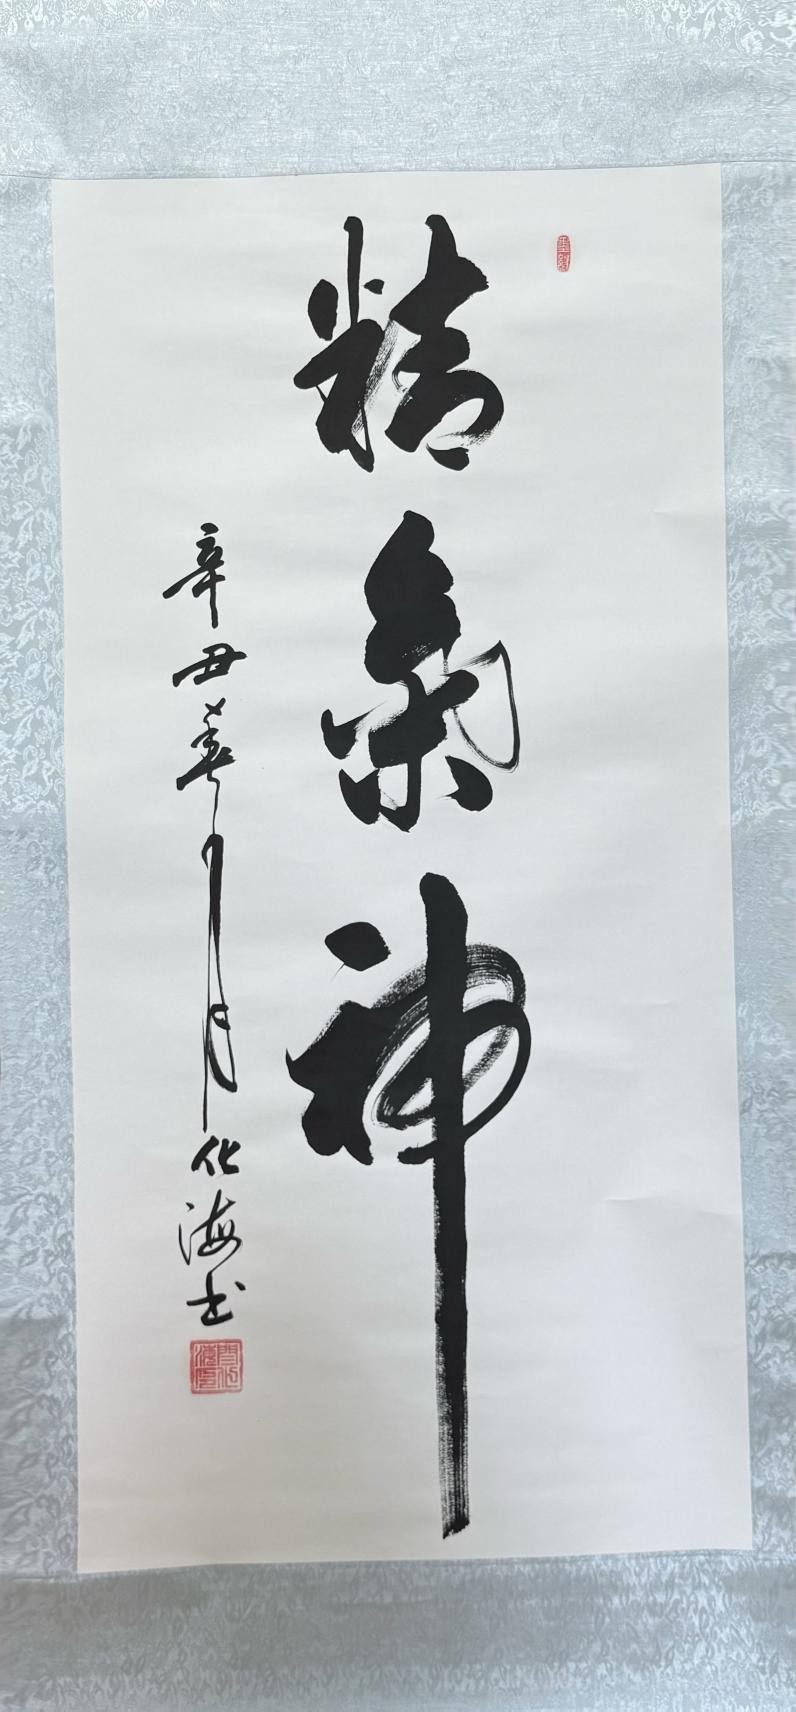 精氣神
辛丑春月化海书